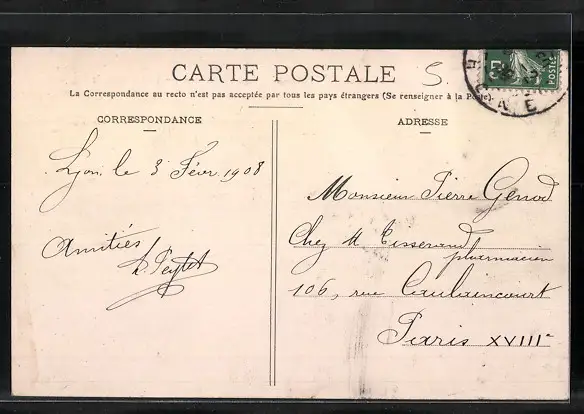 CARTE POSTALE
5
La Correspondance au recto n'est pas acceptée par tous les pays étrangers (Se renseigner à la Poste).
CORRESPONDANCE
ADRESSE
Lyon le 3 Févr 1908
Amitiés
Monsieur Pierre Genod
Chez M Tisserand
pharmacien
106, rue Caulaincourt
Paris XVIIIe
5
POSTES